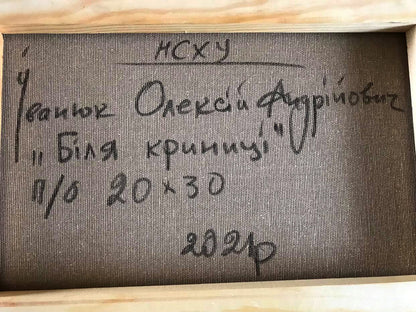 НСХУ
Іванюк Олексій Андрійович
"Біля криниці"
п/о 20×30
2021р